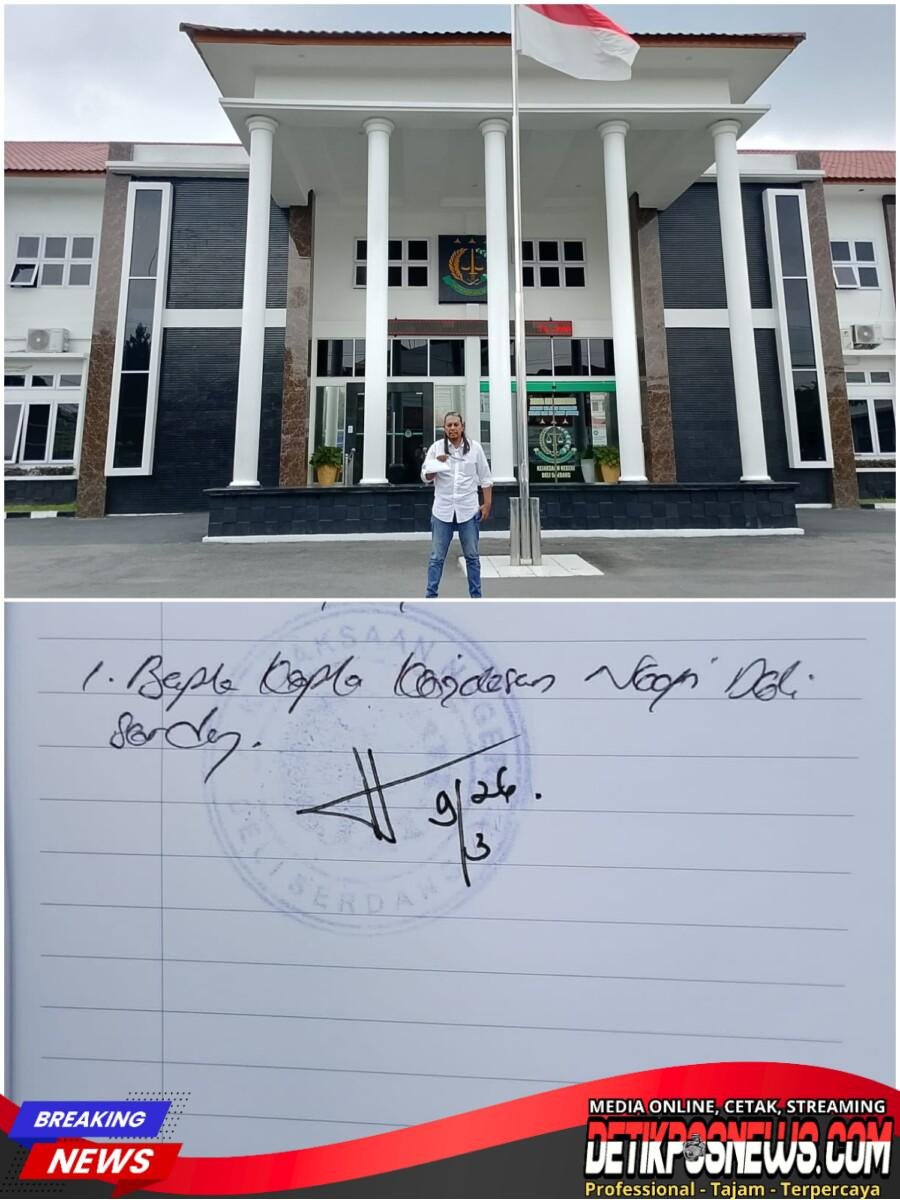 KEJAKSAAN NEGERI
DELI SERDANG
KEJAKSAAN NEGERI
1. Bapak Kepala Kejaksaan Negeri Deli
Serdang.
9/3 26.
DELI SERDANG
BREAKING
NEWS
MEDIA ONLINE, CETAK, STREAMING
DETIKPOSNEWS.COM
Professional - Tajam - Terpercaya